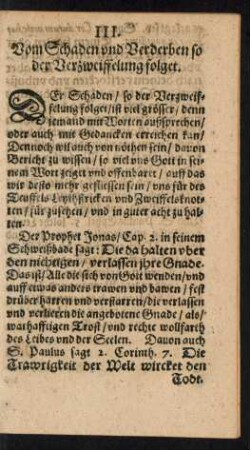 III.
Vom Schaden vnd Verderben so
der Verzweiffelung folget.
DEr Schaden / so der Verzweif-
felung folget / ist viel grösser / denn
jemand mit Worten außsprechen /
oder auch mit Gedancken erreichen kan /
Dennoch wil auch von nöthen sein / davon
Bericht zu wissen / so viel vns Gott in sei-
nem Wort zeiget vnd offenbaret / auff das
wir desto mehr gefliessen sein / vns für des
Teuffels Stricken vnd Zweiffelsknot-
ten / für zusehen / vnd in guter acht zu hal-
ten.
Der Prophet Jonas / Cap. 2. in seinem
Schweißbade sagt: Die da halten vber
den nichtigen / verlassen jhre Gnade.
Das ist / Alle die sich von Gott wenden / vnd
auff etwas anders trawen vnd bawen / fest
drüber harren vnd verstarren / die verlassen
vnd verlieren die angebotene Gnade / als /
warhafftigen Trost / vnd rechte wollfarth
des Leibes vnd der Seelen. Dauon auch
S. Paulus sagt 2. Corinth. 7. Die
Trawrigkeit der Welt wircket den
Todt.